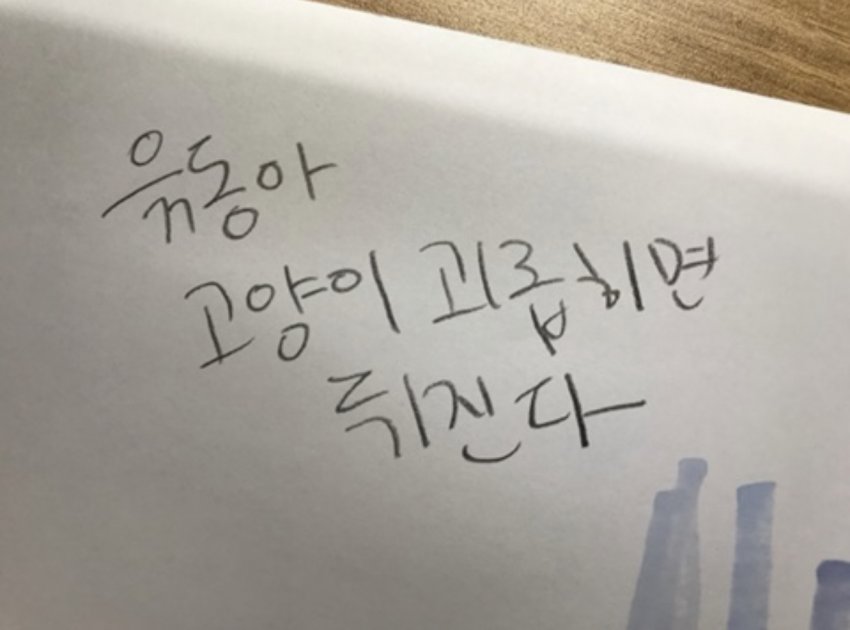 윤동아
고양이 괴롭히면
뒤진다